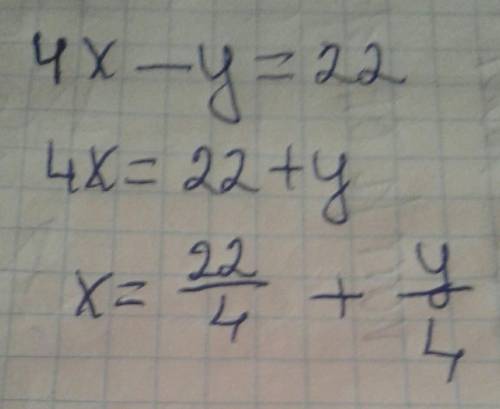 4x - y = 22
4x = 22 + y
x = 22/4 + y/4